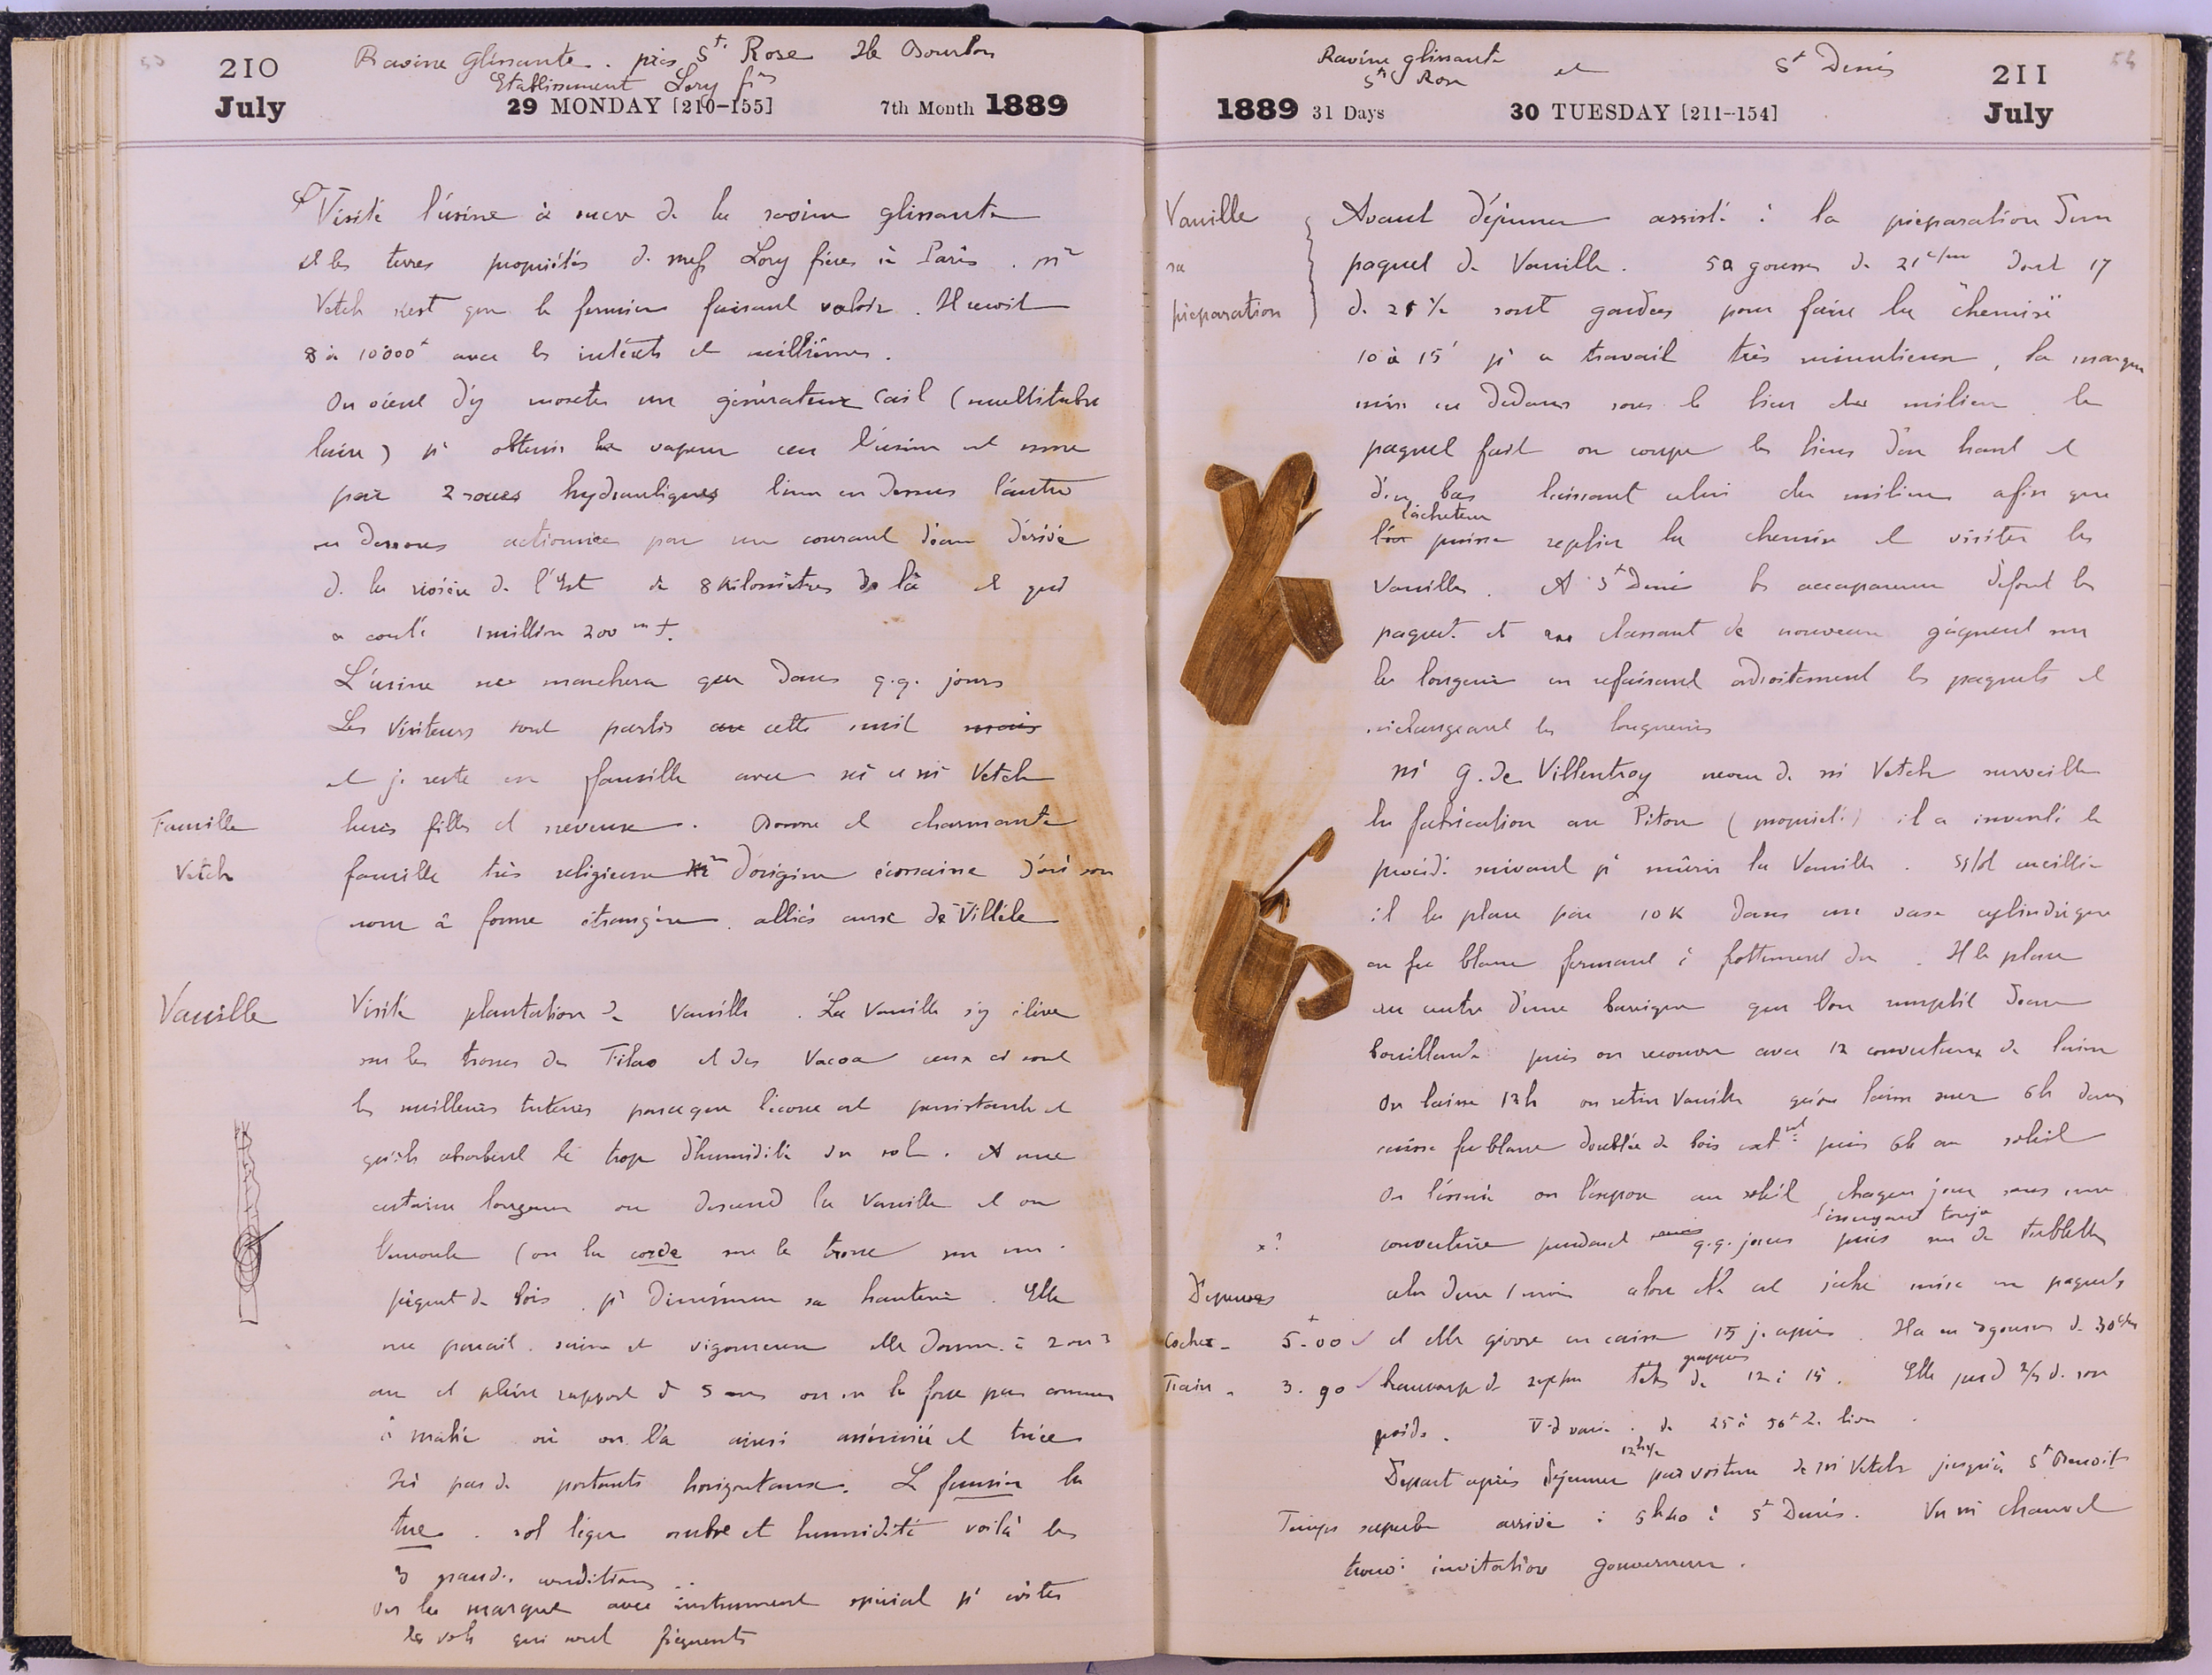 53
210
July
Ravine Glissante. près St. Rose Ile Bourbon
Etablissement Lory frs
29 MONDAY [210-155]
7th Month 1889
Visité l'usine à sucre de la ravine glissante
et les terres propriétés de Lory frères à Paris. Mr
Vetch n'est que le fermier faisant valoir. Il
8 à 10000 avec les intérêts et
On vient d'y monter un générateur Cail (multitubu
laire) pr obtenir la vapeur car l'usine est mue
par 2 roues hydrauliques l'une en dessus l'autre
en dessous actionnées par un courant d'eau dérivé
de la rivière de l'Est de 8 kilomètres de là et qui
a coûté 1 million 200 m f.
L'usine ne marchera que dans q.q. jours
Les visiteurs sont partis cette nuit mais
et je reste en famille avec Mr et Me Vetch
Famille
Vetch
leurs filles et neveux. Bonne et charmante
famille très religieuse d'origine écossaise d'où son
nom à forme étrangère. alliés aux de Villèle
Vanille
Visité plantation de vanille. La vanille s'y élève
sur les troncs des Filao et des Vacoa ceux ci sont
les meilleurs tuteurs parceque l'écorce est persistante et
qu'ils absorbent le trop d'humidité du sol. A une
certaine longueur on descend la vanille et on
l'enroule (on la corde sur le tronc sur un
piquet de bois pr diminuer sa hauteur. Elle
me parait saine et vigoureuse elle donne à 2 ou 3
ans et plein rapport à 5 ans on ne la force pas comme
à Mahé où on l'a ainsi et tuée
Ici pas de portants horizontaux. Le fumier la
tue. sol léger ombre et humidité voilà les
3 grandes conditions
On les marque avec instrument spécial pr éviter
les vols qui sont fréquents
54
Ravine glissante
Ste Rose
et
St Denis
211
July
1889 31 Days
30 TUESDAY [211-154]
Vanille
sa
préparation
Avant déjeuner assisté à la préparation d'un
paquet de Vanille. 50 gousses de 21 c/m dont 17
de 21 ½ sont gardées pour faire la "chemise"
10 à 15' pr ce travail très minutieux, la marque
mise en dedans sous le lien du milieu le
paquet fait on coupe les liens d'en haut et
d'en bas laissant celui du milieu afin que
l'acheteur
l'on puisse replier la chemise et visiter les
vanilles. A St Denis les accapareurs défont les
paquets et en classant de nouveau gagnent sur
les longueurs en refaisant adroitement les paquets et
mélangeant les longueurs
Mr G. de Villentroy neveu de Mr Vetch surveille
la fabrication au Piton (propriété) il a inventé le
procédé suivant pr mûrir la Vanille. Sitôt cueillie
il la place par 10 K dans un vase cylindrique
en fer blanc fermant à frottement dur. Il le place
au centre d'une barrique que l'on remplit d'eau
bouillante puis on recouvre avec 12 couvertures de laine
On laisse 12h on retire Vanille qu'on laisse suer 6h dans
caisse fer blanc doublée de bois extnt puis 6h au soleil
On l'essuie on l'expose au soleil chaque jour sous une
l'essuyant toujs
x?
couverture pendant q.q. jours puis sur des tablettes
Dépenses
cela dure 1 mois alors elle est sèche mise en paquets
Cocher - 5-00
et elle givre en caisse 15 j. après. Il a eu gousses de 30 c/m
grappes
Train - 3.90
beaucoup de de 12 à 15. Elle perd de son
poids. de 25 à 56 f
12h½
Départ après déjeuner par voiture de Mr Vetch jusqu'à St Benoit
Temps superbe arrivée à 5h40 à St Denis. Vu Mr Chauvel
trouvé invitation gouverneur.